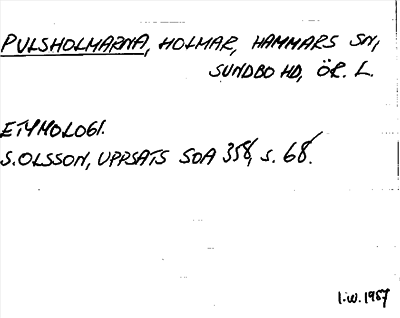 PULSHOLMARNA, HOLMAR, HAMMARS SN,
SUNDBO HD, ÖR. L.
ETYMOLOGI.
S. OLSSON, UPPSATS SOA 358, S. 68.
I.W. 1957